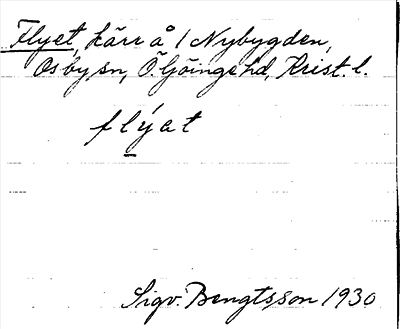 Flyet, kärr å 1 Nybygden,
Osby sn, Ö. Göinge hd, Krist. l.
flýat
Sigv. Bengtsson 1930